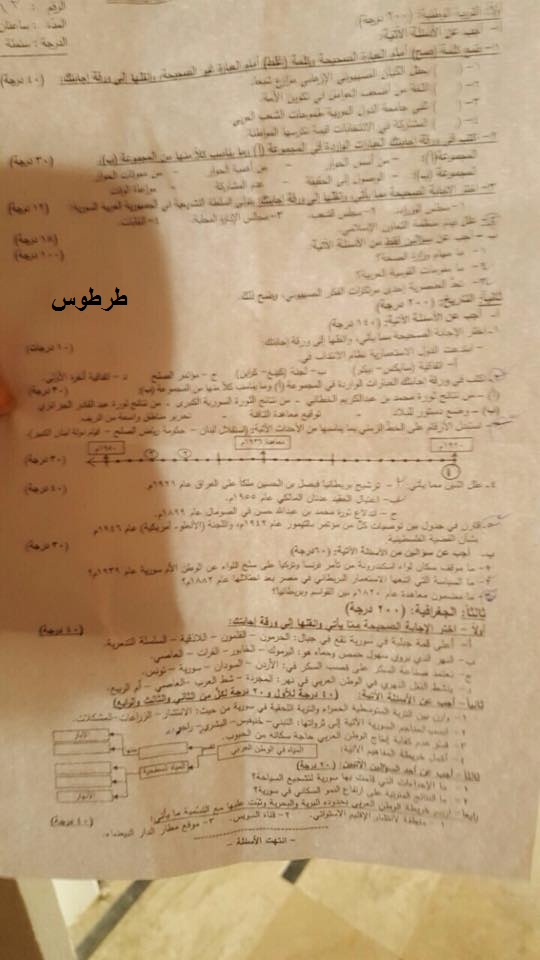 الرقم :
المدة : ساعتان
الدرجة : ستمئة
أولاً: التربية الوطنية: (٢٠٠ درجة)
أ- أجب عن الأسئلة الآتية:
١- ضع كلمة (صح) أمام العبارة الصحيحة وكلمة (غلط) أمام العبارة غير الصحيحة، وانقلها إلى ورقة إجابتك: (٤٠ درجة)
١- ( ) يحتل الكيان الصهيوني الإرهابي مزارع شبعا.
٢- ( ) اللغة من أضعف العوامل في تكوين الأمة.
٣- ( ) تلبي جامعة الدول العربية طموحات الشعب العربي
٤- ( ) المشاركة في الانتخابات قيمة تكرسها المواطنة.
٢- اكتب في ورقة إجابتك العبارات الواردة في المجموعة (أ) وما يناسب كلاً منها من المجموعة (ب): (٣٠ درجة)
المجموعة (أ): - من أسس الحوار - من أهمية الحوار - من معوقات الحوار
المجموعة (ب): - الوصول إلى الحقيقة - عدم المشاركة - مراعاة الوقت
٣- اختر الإجابة الصحيحة مما يأتي، وانقلها إلى ورقة إجابتك: يتولى السلطة التشريعية في الجمهورية العربية السورية: (١٢ درجة)
١- مجلس الوزراء. ٢- مجلس الشعب. ٣- مجالس الإدارة المحلية. ٤- النقابات.
٤- علل قيام منظمة التعاون الإسلامي. (١٨ درجة)
ب- أجب عن سؤالين فقط من الأسئلة الآتية: (١٠٠ درجة)
١- ما مهام وزارة الصحة؟
٢- ما مقومات القومية العربية؟
٣- تعد العنصرية إحدى مرتكزات الفكر الصهيوني، وضح ذلك.
طرطوس
ثانياً: التاريخ: (٢٠٠ درجة)
أ- أجب عن الأسئلة الآتية: (١٤٠ درجة)
١- اختر الإجابة الصحيحة مما يأتي، وانقلها إلى ورقة إجابتك: (١٠ درجات)
- ابتدعت الدول الاستعمارية نظام الانتداب في:
أ- اتفاقية (سايكس- بيكو) ب- لجنة (كينغ- كراين) ج- مؤتمر الصلح د- اتفاقية أنقرة الأولى.
٢- اكتب في ورقة إجابتك العبارات الواردة في المجموعة (أ) وما يناسب كلاً منها من المجموعة (ب): (٣٠ درجة)
(أ)- من نتائج ثورة محمد بن عبد الكريم الخطابي - من نتائج الثورة السورية الكبرى - من نتائج ثورة عبد القادر الجزائري
(ب)- وضع دستور للبلاد - توقيع معاهدة التافنة - تحرير مناطق واسعة من الريف
٣- استبدل الأرقام على الخط الزمني بما يناسبها من الأحداث الآتية: (استقلال لبنان - حكومة رياض الصلح - قيام دولة لبنان الكبير). (٣٠ درجة)
١٩٢٠ معاهدة ١٩٣٦م ١٩٥٠
٤- علل اثنين مما يأتي: أ- ترشيح بريطانيا فيصل بن الحسين ملكاً على العراق عام ١٩٢١م. (٤٠ درجة)
ب- اغتيال العقيد عدنان المالكي عام ١٩٥٥م.
ج- اندلاع ثورة محمد بن عبد الله حسن في الصومال عام ١٨٩٩م.
٥- قارن في جدول بين توصيات كل من مؤتمر بلتيمور عام ١٩٤٢م، واللجنة (الأنجلو- أمريكية) عام ١٩٤٦م
بشأن القضية الفلسطينية (٣٠ درجة)
ب- أجب عن سؤالين من الأسئلة الآتية: (٦٠ درجة)
١- ما موقف سكان لواء اسكندرونة من تآمر فرنسا وتركيا على سلخ اللواء عن الوطن الأم سورية عام ١٩٣٩م؟
٢- ما السياسة التي اتبعها الاستعمار البريطاني في مصر بعد احتلالها عام ١٨٨٢م؟
٣- ما مضمون معاهدة عام ١٨٢٠م بين القواسم وبريطانيا؟
ثالثاً: الجغرافية: (٢٠٠ درجة)
أولاً - اختر الإجابة الصحيحة مما يأتي وانقلها إلى ورقة إجابتك: (٤٠ درجة)
أ- أعلى قمة جبلية في سورية تقع في جبال: الحرمون - القلمون - اللاذقية - السلسلة التدمرية.
ب- النهر الذي يروي سهول حمص وحماه هو: اليرموك - الخابور - الفرات - العاصي.
ج- تعتمد صناعة السكر على قصب السكر في: الأردن - السودان - سورية - تونس.
د- ينشط النقل النهري في الوطن العربي في نهر: المجردة - شط العرب - العاصي - أم الربيع.
ثانياً- أجب عن الأسئلة الآتية: (٤٠ درجة للأول و ٢٠ درجة لكل من الثاني والثالث والرابع)
١- وازن بين التربة المتوسطية الحمراء والتربة اللحقية في سورية من حيث: الانتشار - الزراعات - المشكلات.
٢- انسب المناجم السورية الآتية إلى ثرواتها: التبني- خنيفيس- البشري- راجو
٣- فسر عدم كفاية إنتاج الوطن العربي حاجة سكانه من الحبوب.
٤- أكمل خريطة المفاهيم الآتية:
المياه في الوطن العربي
المياه السطحية
الآبار
الأنهار
ثالثاً- أجب عن أحد السؤالين الآتيين: (٢٠ درجة)
١- ما الإجراءات التي قامت بها سورية لتشجيع السياحة؟
٢- ما النتائج المترتبة على ارتفاع النمو السكاني في سورية؟
رابعاً- ارسم خريطة الوطن العربي بحدوده البرية والبحرية وثبت عليها مع التسمية ما يأتي: (٤٠ درجة)
١- منطقة لانتشار الإقليم الاستوائي. ٢- قناة السويس. ٣- موقع مطار الدار البيضاء.
- انتهت الأسئلة -